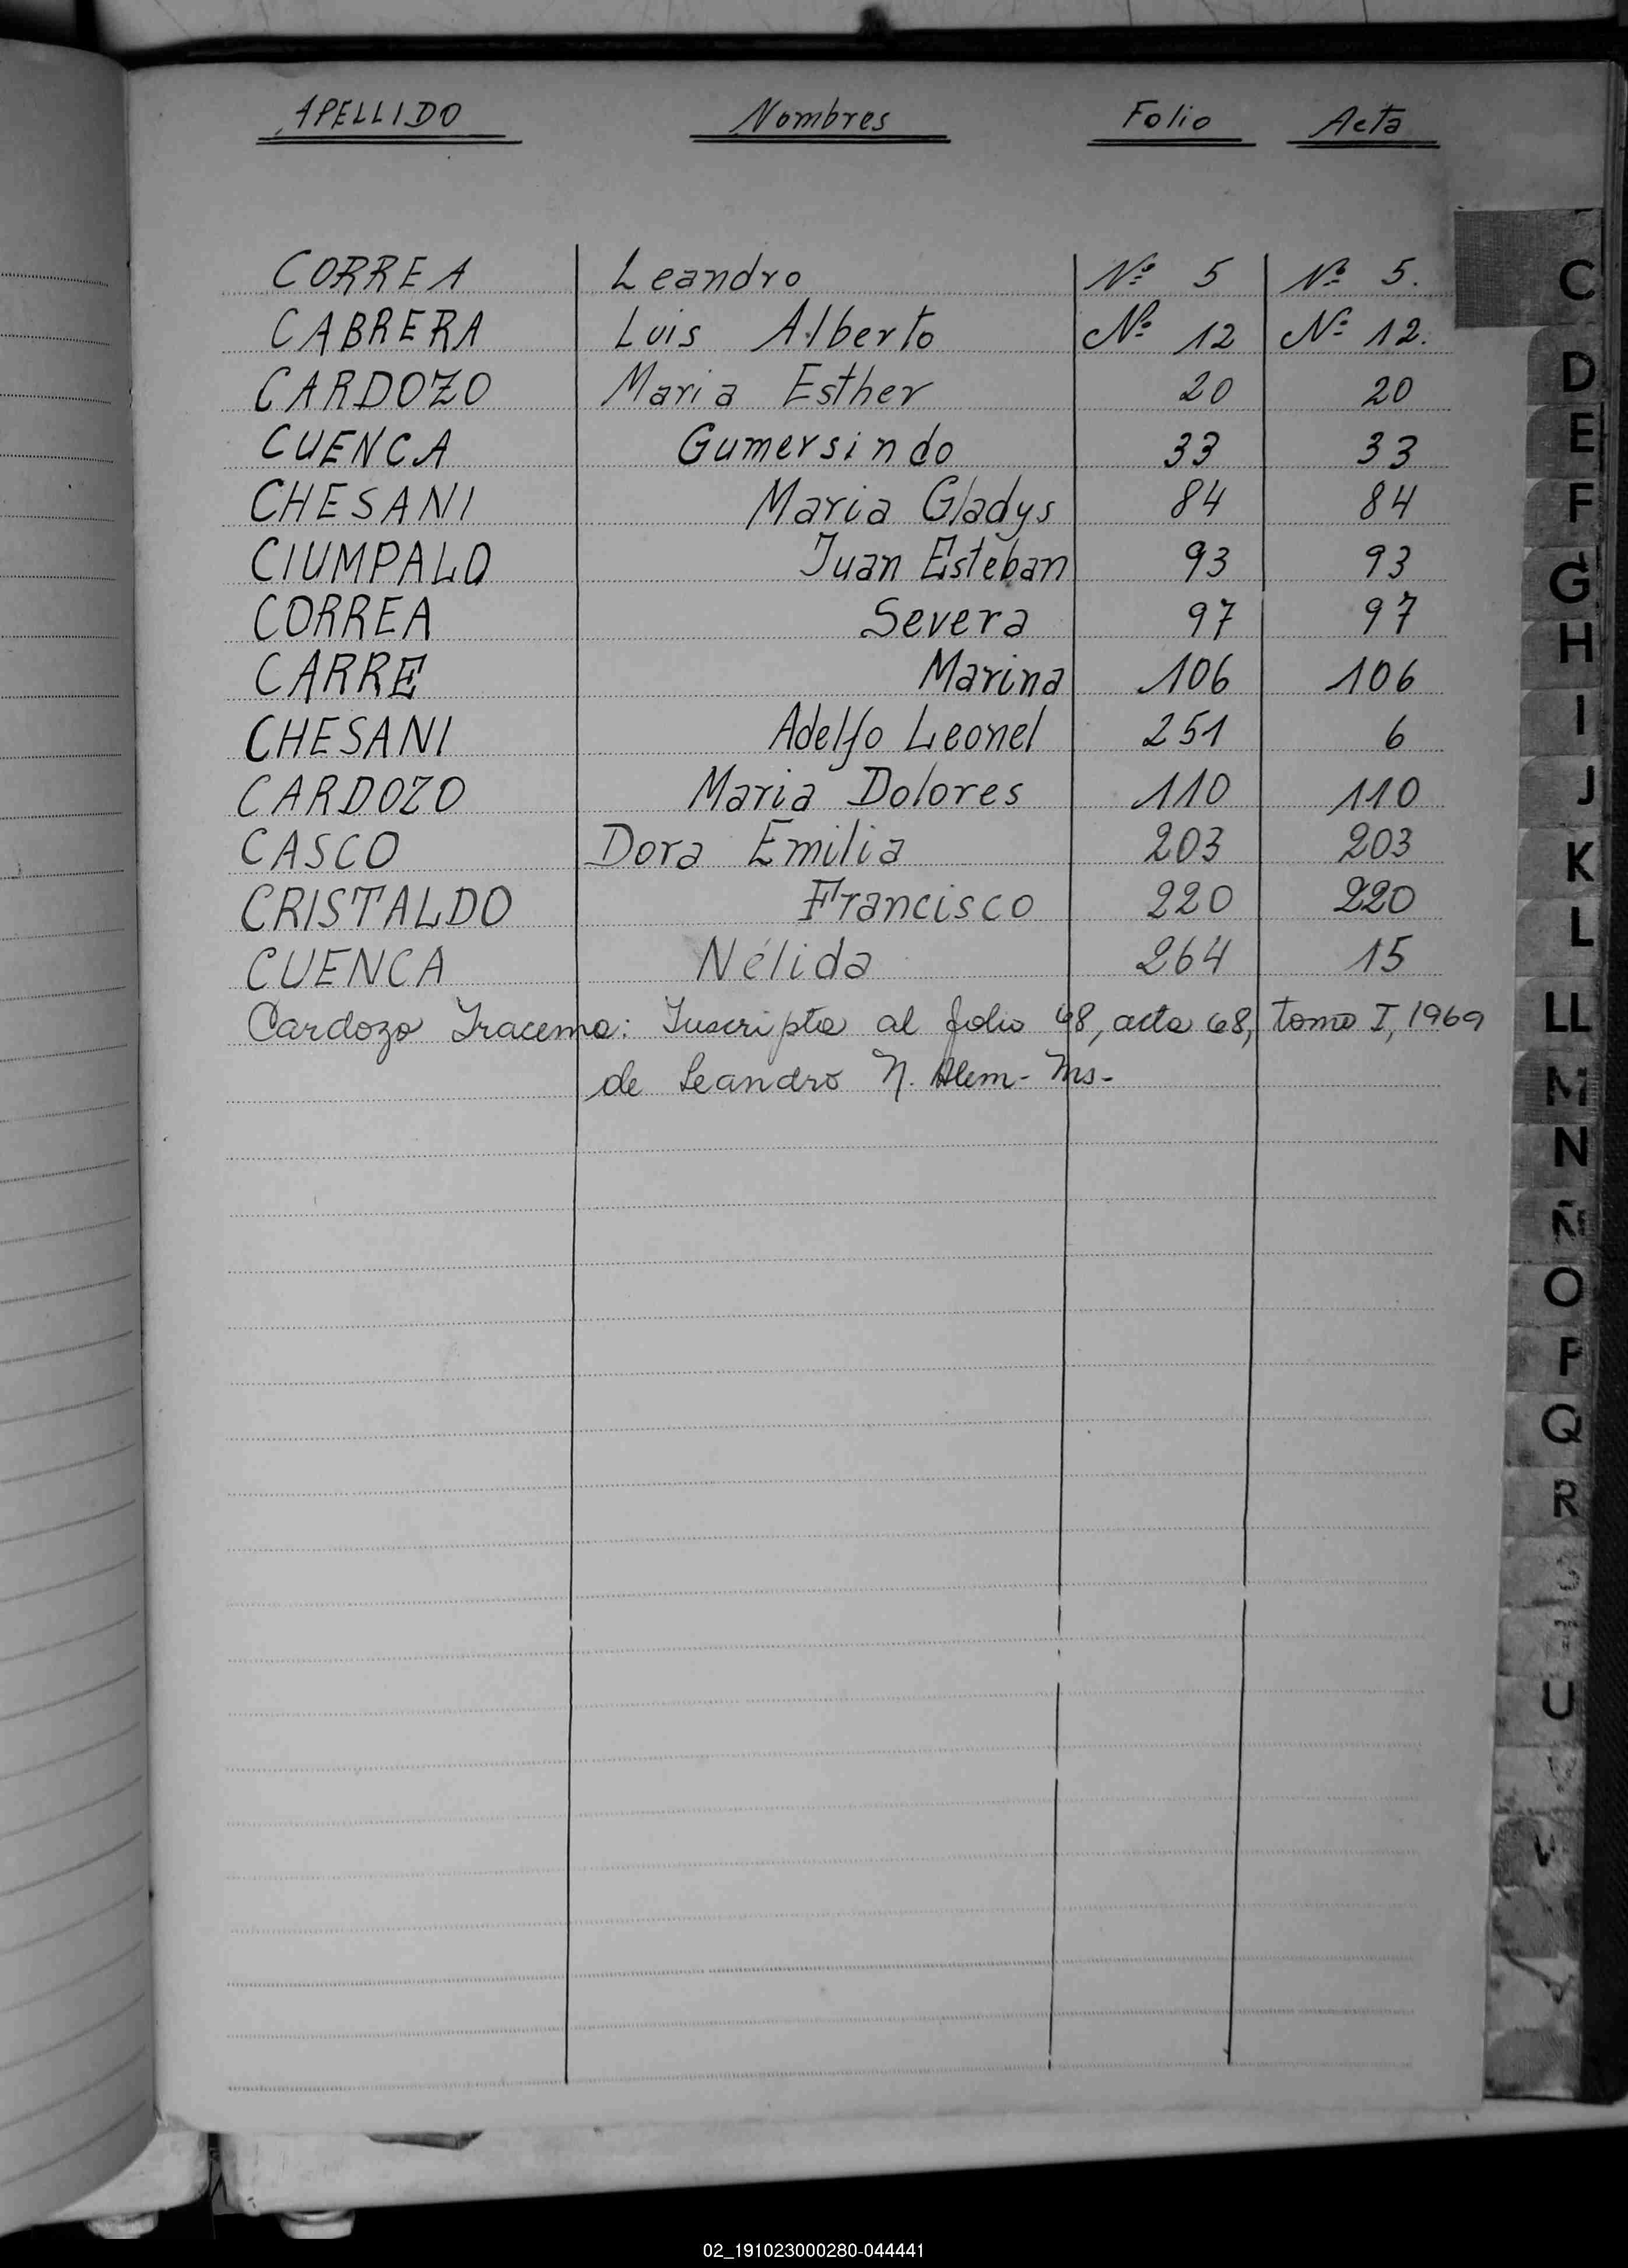 APELLIDO Nombres Folio Acta
CORREA Leandro Nº 5 Nº 5.
CABRERA Luis Alberto Nº 12 Nº 12.
CARDOZO Maria Esther 20 20
CUENCA Gumersindo 33 33
CHESANI Maria Gladys 84 84
CIUMPALO Juan Esteban 93 93
CORREA Severa 97 97
CARRE Marina 106 106
CHESANI Adelfo Leonel 251 6
CARDOZO Maria Dolores 110 110
CASCO Dora Emilia 203 203
CRISTALDO Francisco 220 220
CUENCA Nélida 264 15
Cardozo Iracema: Inscripta al folio 68, acta 68, tomo I, 1969
de Leandro N. Alem - Ms -
C
D
E
F
G
H
I
J
K
L
LL
M
N
Ñ
O
P
Q
R
U
V
02_191023000280-044441